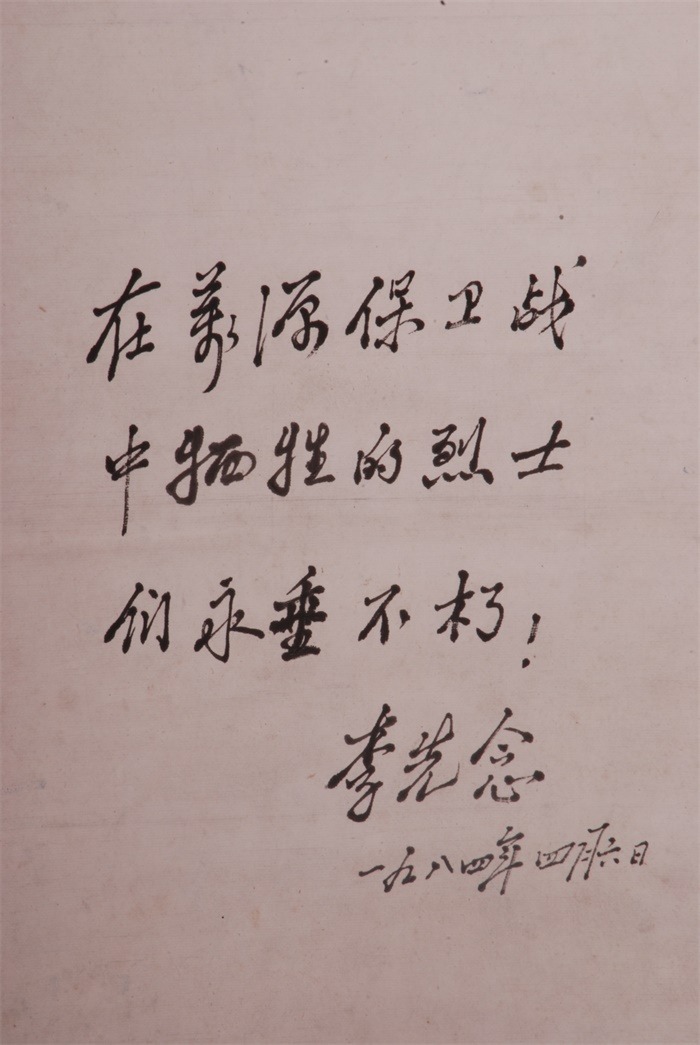 在萬源保卫战
中牺牲的烈士
们永垂不朽！
李先念
一九八四年四月六日